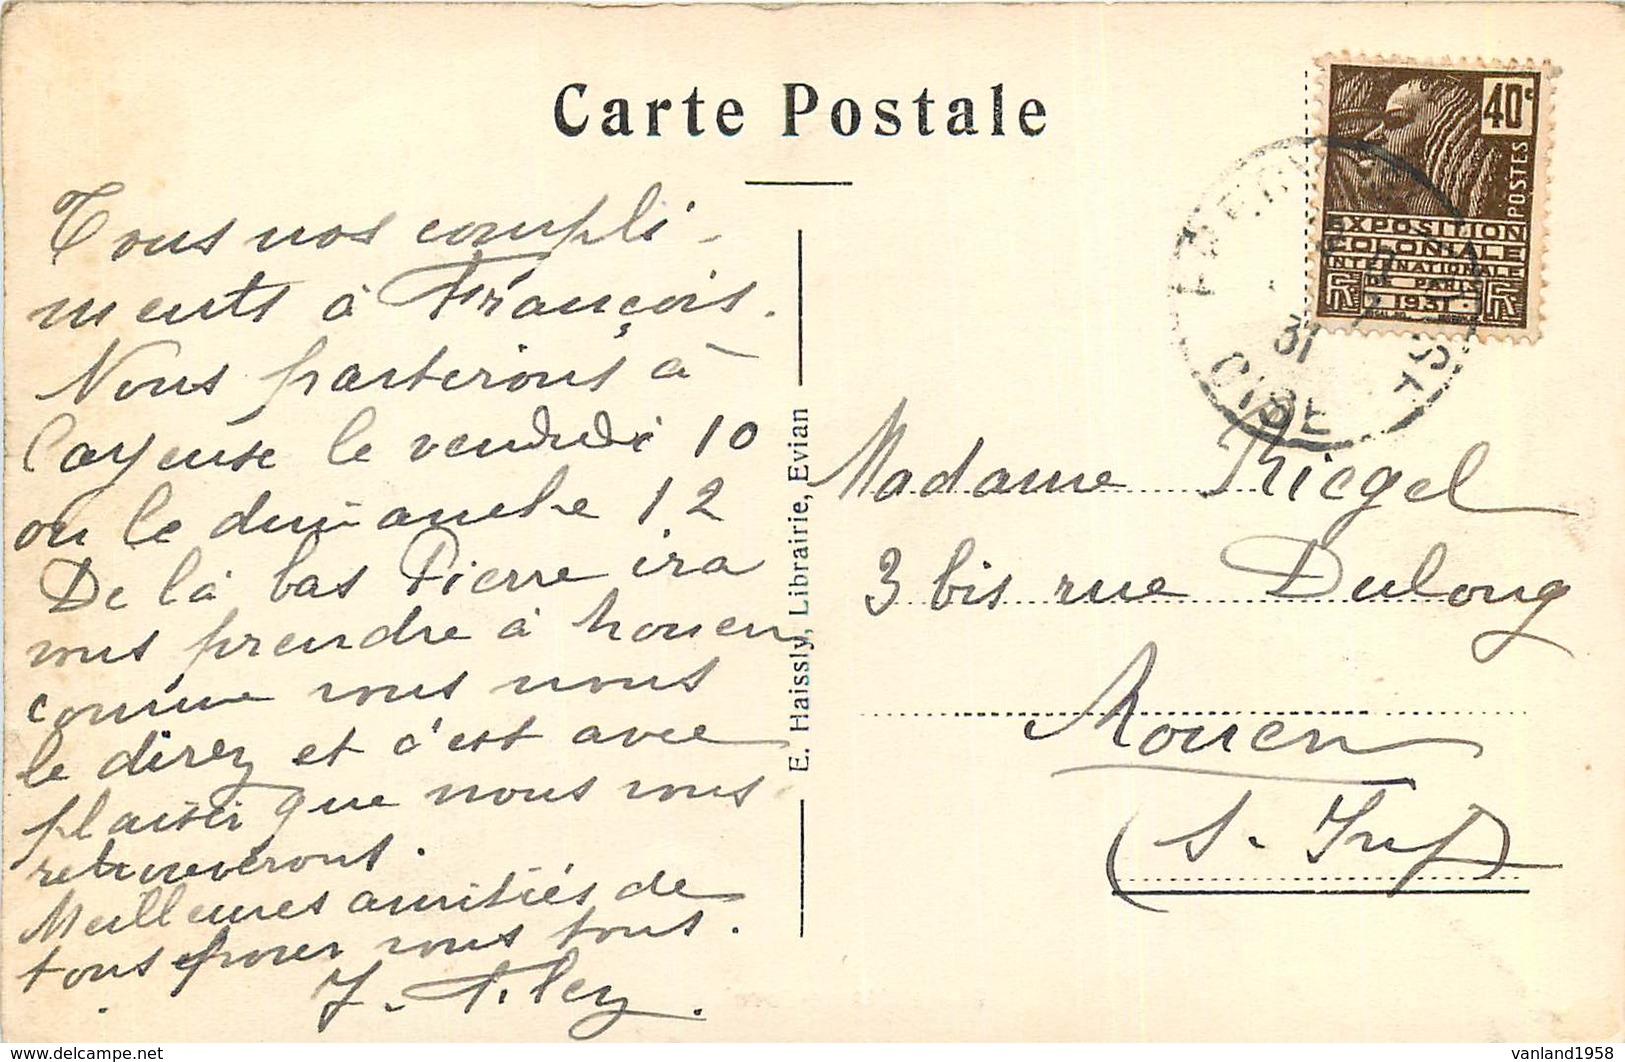 Carte Postale
Tous nos compli-
ments à François.
Nous partirons à
Cayeuse le vendredi 10
ou le dimanche 12
De là bas Pierre ira
vous prendre à Rouen
comme vous nous
le direz et c'est avec
plaisir que nous vous
retrouverons.
Meilleures amitiés de
tous pour vous tous.
E. Haissly, Librairie, Evian
40c
POSTES
EXPOSITION
COLONIALE
INTERNATIONALE
DE PARIS
1931
31
Madame Riegel
3 bis rue Dulong
Rouen
(S. Inf)
vanland1958